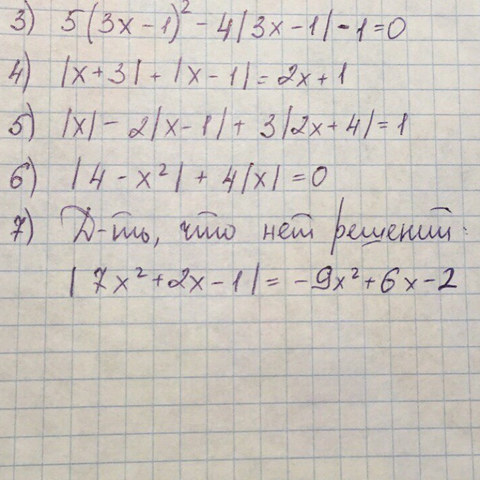 3) 5(3x-1)² - 4|3x-1| -1=0
4) |x+3| + |x-1| = 2x+1
5) |x| - 2|x-1| + 3|2x+4| = 1
6) |4-x²| + 4|x| = 0
7) Д-ть, что нет решений:
|7x²+2x-1| = -9x²+6x-2